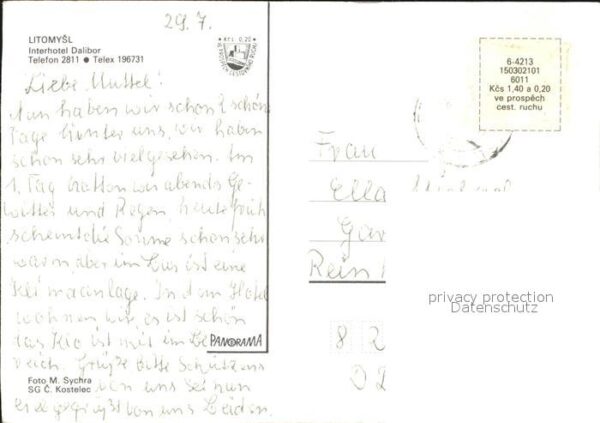 29. 7.
LITOMYŠL
Interhotel Dalibor
Telefon 2811 ● Telex 196731
Kčs 0,20
6-4213
150302101
6011
Kčs 1,40 a 0,20
ve prospěch
cest. ruchu
Liebe Muttel!
Nun haben wir schon 2 schöne
Tage hinter uns, wir haben
schon sehr viel gesehen. Im
1. Tag hatten wir abends Ge-
witter und Regen, heute früh
scheint die Sonne schon sehr
warm aber im Bus ist eine
Klimaanlage. In dem Hotel
wohnen wir, es ist schön
das ist mit im Be
reich. Grüße bitte Schützens
von uns Sei nun
gegrüßt von uns Beiden.
Frau
Ella
Gar
Rein
8 2
02
PANORAMA
Foto M. Sychra
SG Č. Kostelec
privacy protection
Datenschutz